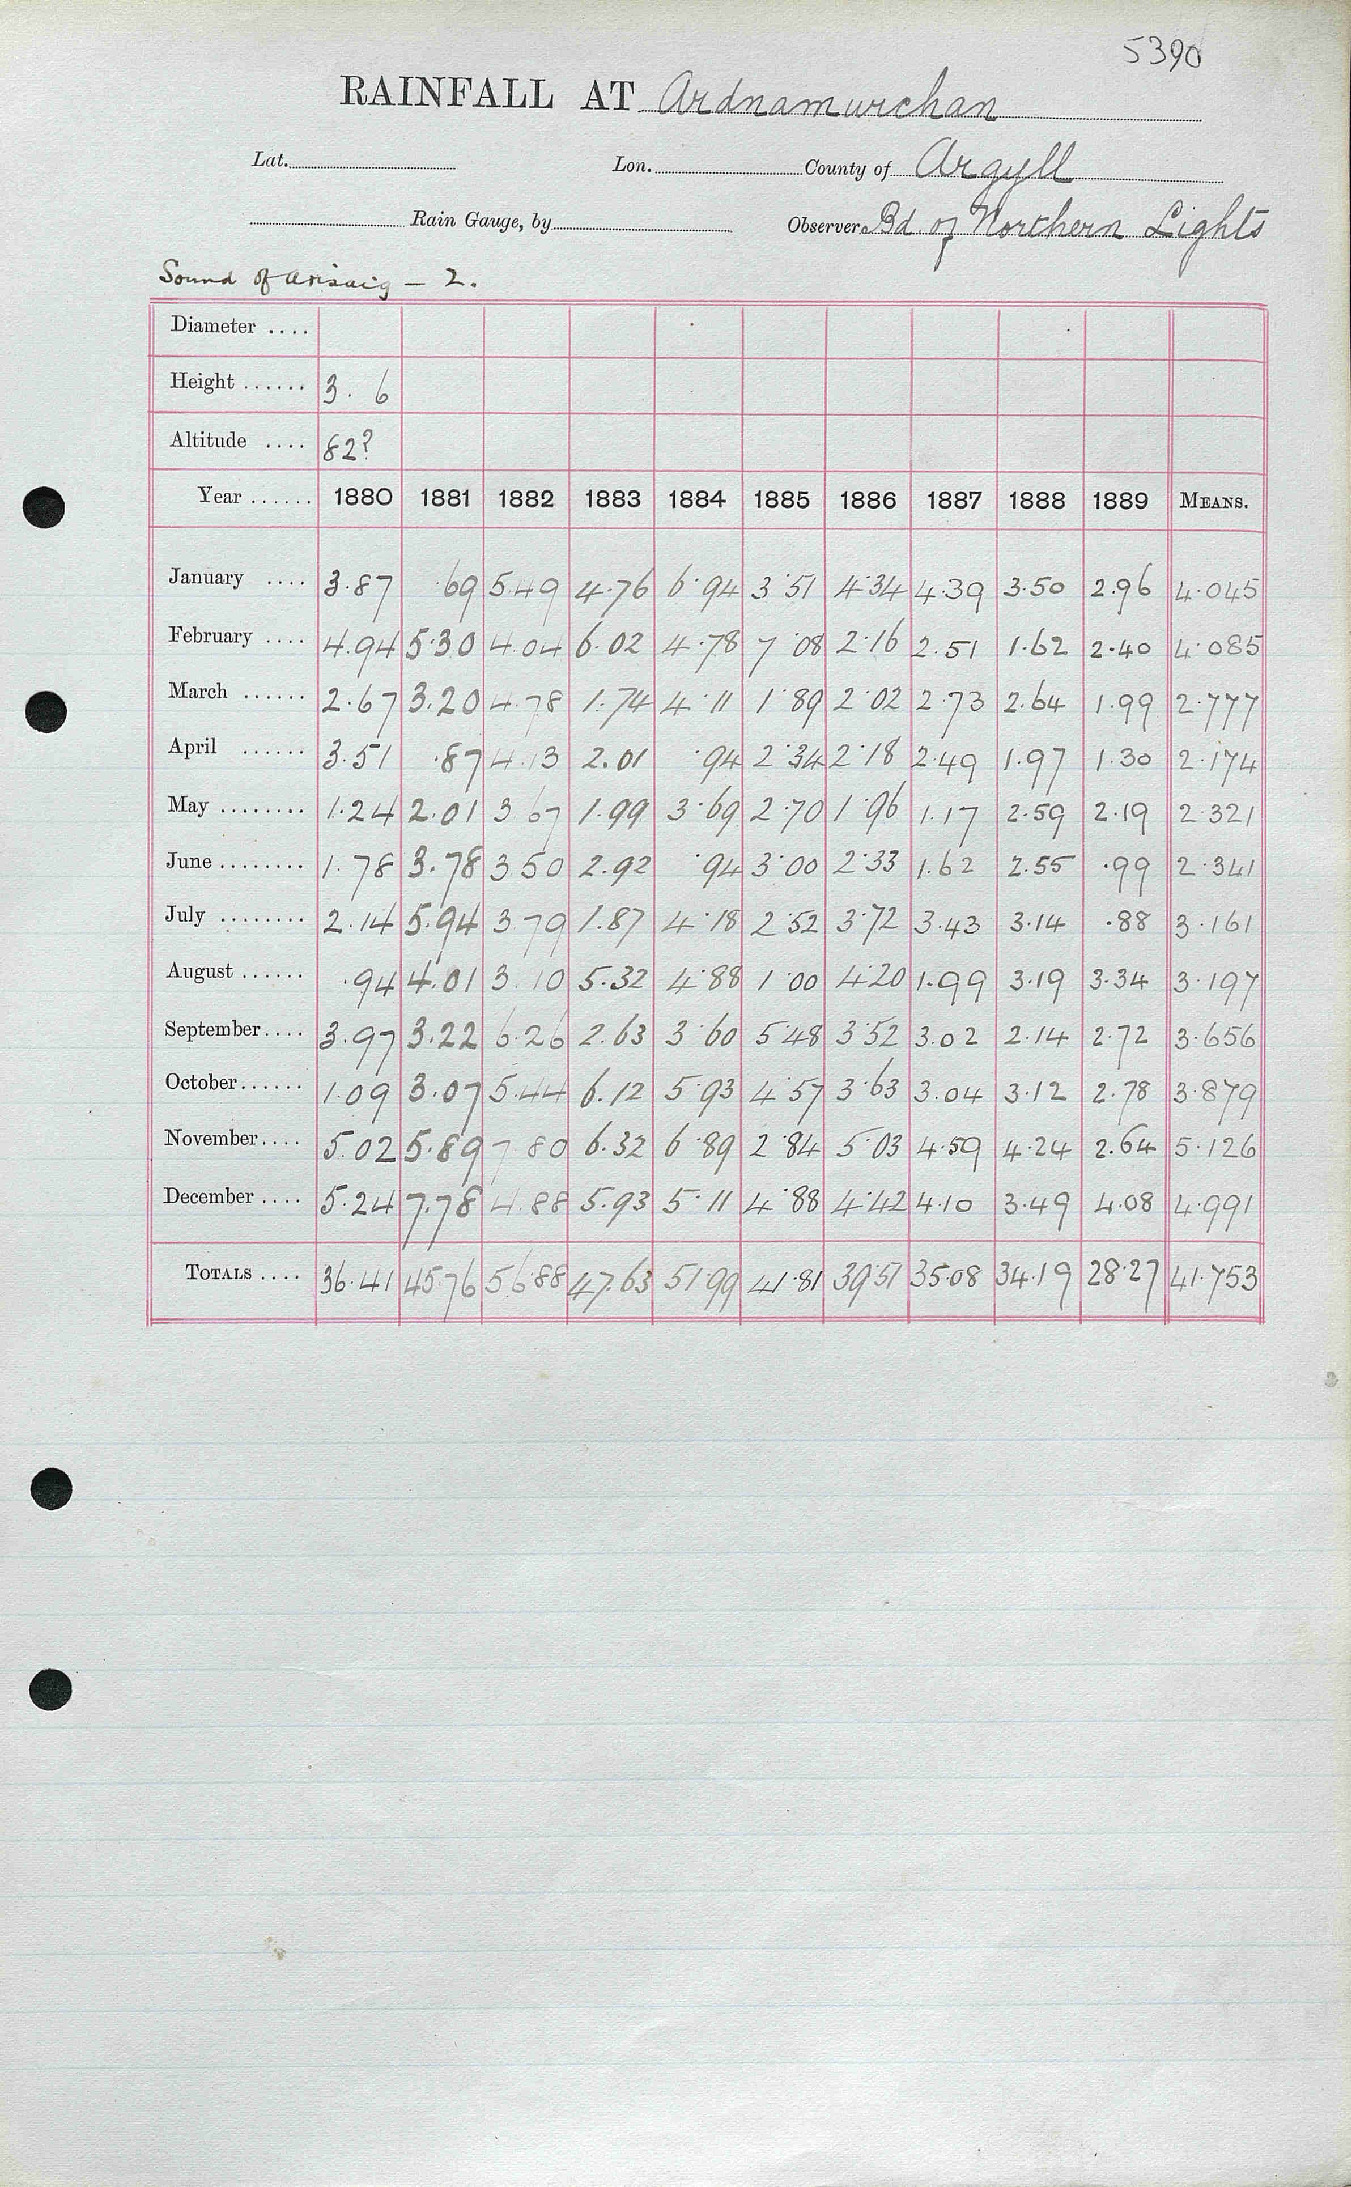 5390
RAINFALL AT Ardnamurchan
Lat. Lon. County of Argyll
Rain Gauge, by Observer Bd. of Northern Lights
Sound of Arisaig — 2.
Diameter ....
Height ...... 3. 6
Altitude .... 82?
Year ...... 1880 1881 1882 1883 1884 1885 1886 1887 1888 1889 MEANS.
January .... 3.87 .69 5.49 4.76 6.94 3.51 4.34 4.39 3.50 2.96 4.045
February .... 4.94 5.30 4.04 6.02 4.78 7.08 2.16 2.51 1.62 2.40 4.085
March ...... 2.67 3.20 4.78 1.74 4.11 1.89 2.02 2.73 2.64 1.99 2.777
April ...... 3.51 .87 4.13 2.01 .94 2.34 2.18 2.49 1.97 1.30 2.174
May ........ 1.24 2.01 3.67 1.99 3.69 2.70 1.96 1.17 2.59 2.19 2.321
June ........ 1.78 3.78 3.50 2.92 .94 3.00 2.33 1.62 2.55 .99 2.341
July ........ 2.14 5.94 3.79 1.87 4.18 2.52 3.72 3.43 3.14 .88 3.161
August ...... .94 4.01 3.10 5.32 4.88 1.00 4.20 1.99 3.19 3.34 3.197
September.... 3.97 3.22 6.26 2.63 3.60 5.48 3.52 3.02 2.14 2.72 3.656
October...... 1.09 3.07 5.44 6.12 5.93 4.57 3.63 3.04 3.12 2.78 3.879
November.... 5.02 5.89 7.80 6.32 6.89 2.84 5.03 4.59 4.24 2.64 5.126
December .... 5.24 7.78 4.88 5.93 5.11 4.88 4.42 4.10 3.49 4.08 4.991
TOTALS .... 36.41 45.76 56.88 47.63 51.99 41.81 39.51 35.08 34.19 28.27 41.753